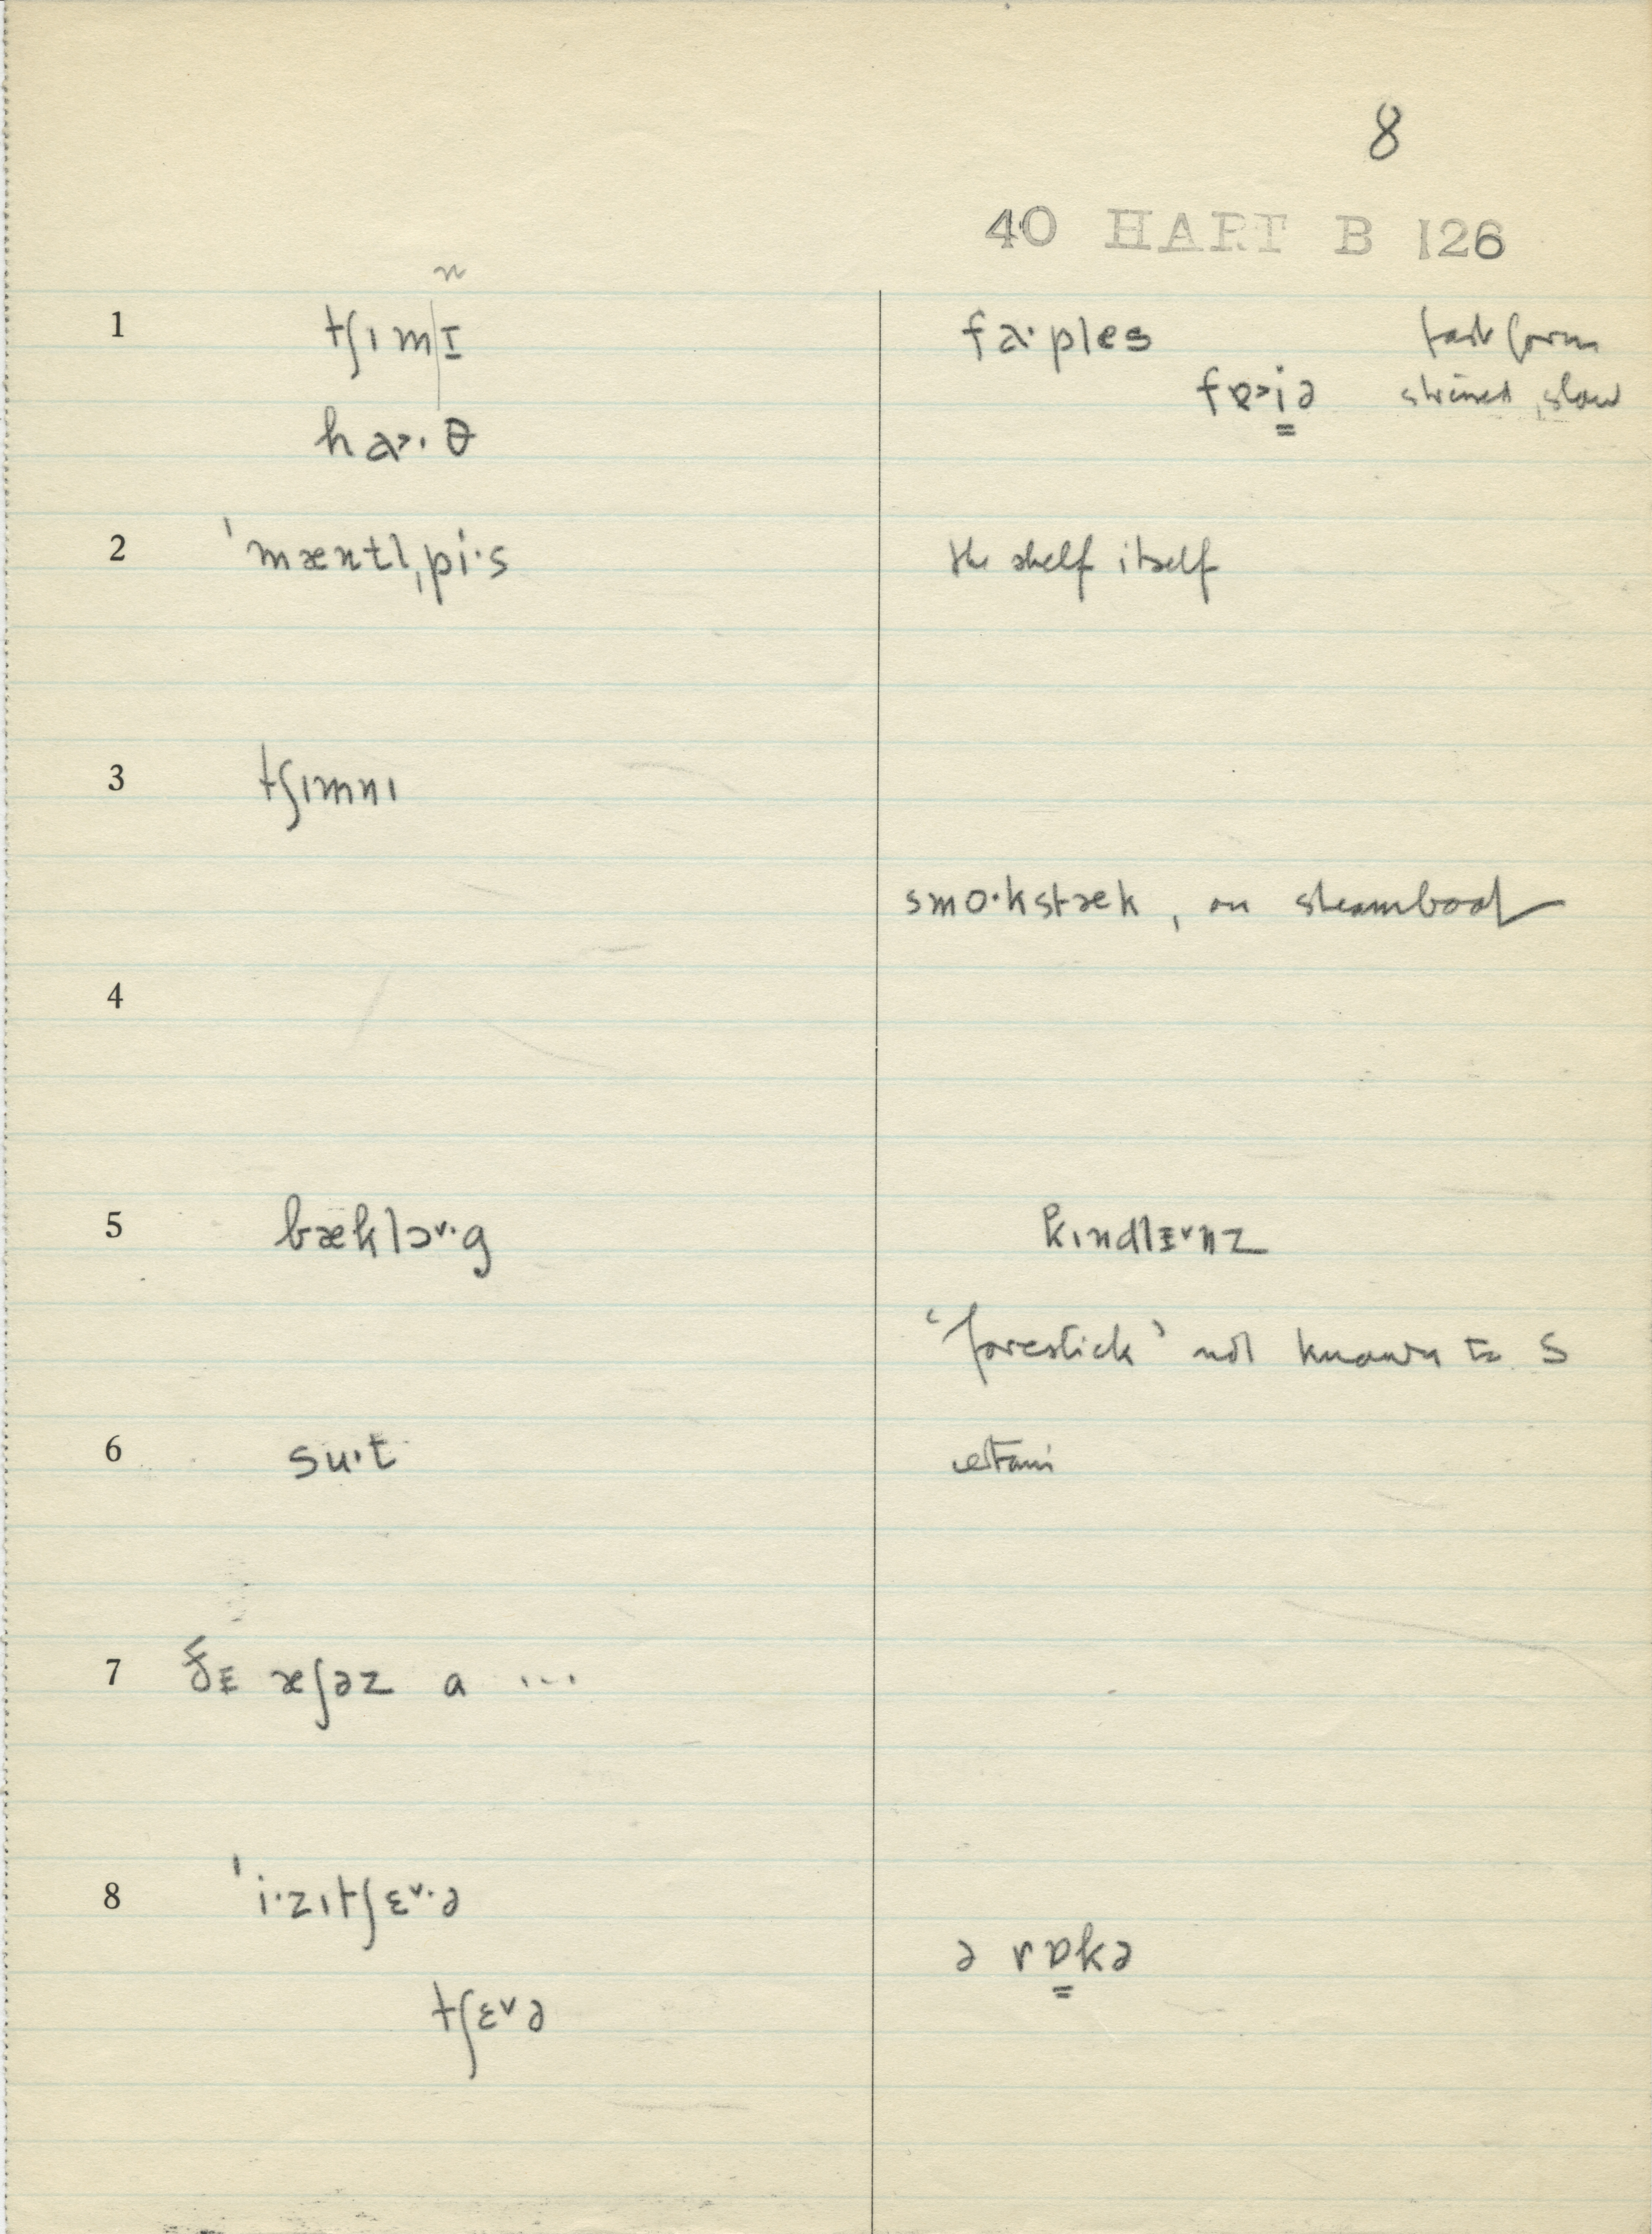 8
40 HART B 126
n
1 tʃɪmɪ fa·ples fast form
fɐ>i̳ə stressed, slow
ha>·θ
2 ˈmæntlˌpi·s the shelf itself
3 tʃɪmnɪ
smo·kstæk, on steamboat
4
5 bæklɔ˅·g kɪndlɪ˅nz
‘forestick’ not known to S
6 su·t certain
7 ðɪ æʃəz a ...
8 ˈi·zɪtʃɛ˅·ə
ə rɒ̳kə
tʃɛ˅ə